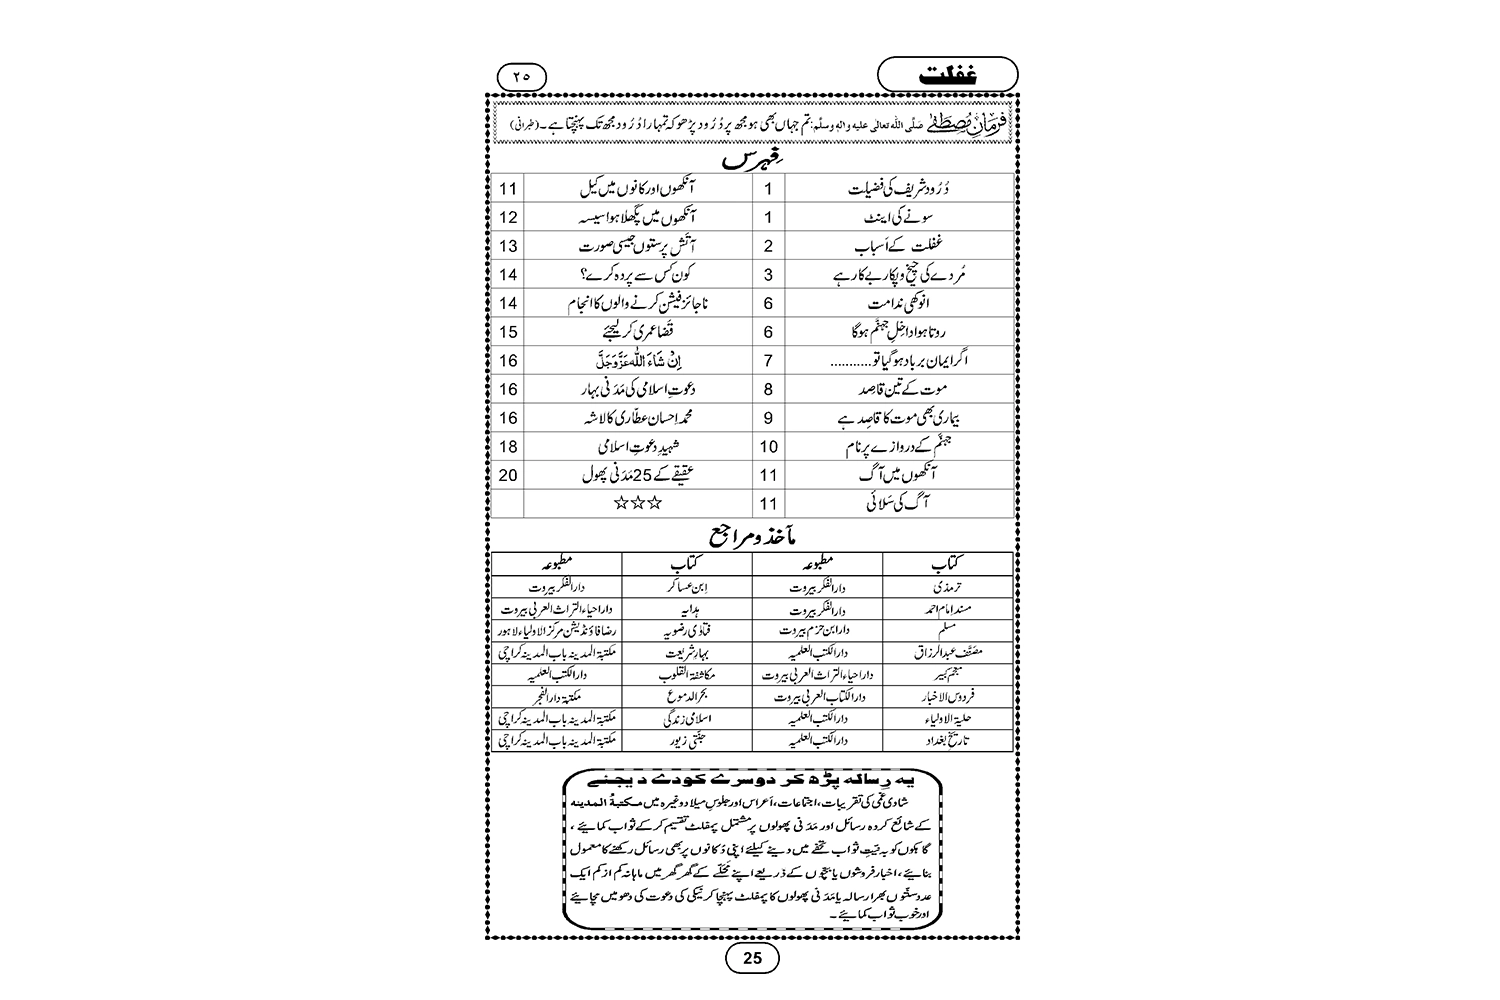 غفلت
۲۵
فرمانِ مُصطَفٰے صلَّی اللہ تعالٰی علیہ والہٖ وسلَّم: تم جہاں بھی ہو مجھ پر دُرُود پڑھو کہ تمہارا دُرُود مجھ تک پہنچتا ہے۔ (طبرانی)
فِہرس
دُرُود شریف کی فضیلت 1 آنکھوں اور کانوں میں کیل 11
سونے کی اینٹ 1 آنکھوں میں پگھلا ہوا سیسہ 12
غفلت کے اَسباب 2 آتَش پرستوں جیسی صورت 13
مُردے کی چیخ و پکار بے کار ہے 3 کون کس سے پردہ کرے؟ 14
انوکھی ندامت 6 ناجائز فیشن کرنے والوں کا انجام 14
روتا ہوا داخِلِ جہنَّم ہوگا 6 قَضا عمری کر لیجئے 15
اگر ایمان برباد ہوگیا تو........... 7 اِنْ شَآءَ اللّٰہ عَزَّوَجَلَّ 16
موت کے تین قاصِد 8 دعوتِ اسلامی کی مَدَنی بہار 16
بیماری بھی موت کا قاصِد ہے 9 محمد اِحسان عطّاری کا لاشہ 16
جہنَّم کے دروازے پر نام 10 شہیدِ دعوتِ اسلامی 18
آنکھوں میں آگ 11 عقیقے کے 25 مَدَنی پھول 20
آگ کی سَلائی 11 ☆☆☆
مآخذ و مراجع
کتاب مطبوعہ کتاب مطبوعہ
ترمذی دارالفکر بیروت اِبن عساکر دارالفکر بیروت
مسند امام احمد دارالفکر بیروت ہدایہ داراحیاء التراث العربی بیروت
مسلم دارابن حزم بیروت فتاوٰی رضویہ رضا فاؤنڈیشن مرکز الاولیاء لاہور
مصَنَّف عبدالرزاق دارالکتب العلمیہ بہارِ شریعت مکتبۃ المدینہ باب المدینہ کراچی
معجم کبیر داراحیاء التراث العربی بیروت مکاشفۃ القلوب دارالکتب العلمیہ
فردوس الاخبار دارالکتاب العربی بیروت بحرالدموع مکتبۃ دارالفجر
حلیۃ الاولیاء دارالکتب العلمیہ اسلامی زندگی مکتبۃ المدینہ باب المدینہ کراچی
تاریخِ بغداد دارالکتب العلمیہ جنّتی زیور مکتبۃ المدینہ باب المدینہ کراچی
یہ رِسالہ پڑھ کر دوسرے کو دے دیجئے
شادی غمی کی تقریبات، اجتماعات، اَعراس اور جلوسِ میلاد وغیرہ میں مکتبۃُ المدینہ
کے شائع کردہ رسائل اور مَدَنی پھولوں پر مشتمل پمفلٹ تقسیم کرکے ثواب کمائیے،
گاہکوں کو بہ نیتِ ثواب تحفے میں دینے کیلئے اپنی دُکانوں پر بھی رسائل رکھنے کا معمول
بنائیے، اخبار فروشوں یا بچّوں کے ذریعے اپنے مَحَلّے کے گھر گھر میں ماہانہ کم از کم ایک
عدد سنّتوں بھرا رسالہ یا مَدَنی پھولوں کا پمفلٹ پہنچا کر نیکی کی دعوت کی دھومیں مچائیے
اور خوب ثواب کمائیے۔
25